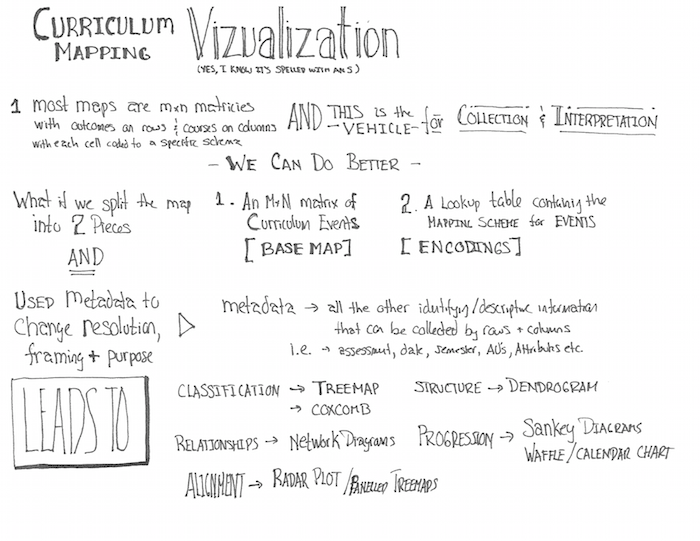 CURRICULUM MAPPING Vizualization
(YES, I KNOW IT'S SPELLED WITH AN S)
1 most maps are mxn matricies
with outcomes on rows & courses on columns
with each cell coded to a specific schema
AND THIS is the
- VEHICLE - for
COLLECTION & INTERPRETATION
- WE CAN DO BETTER -
What if we split the map
into 2 Pieces
AND
1. An MxN matrix of
Curriculum Events
[BASE MAP]
2. A Lookup table containing the
MAPPING SCHEME for EVENTS
[ENCODINGS]
USED Metadata to
Change resolution,
framing + purpose
metadata → all the other identifying/descriptive information
that can be collected by rows + columns
i.e. → assessment, date, semester, AU's, Attributes etc.
LEADS TO
CLASSIFICATION → TREEMAP
→ COXCOMB
STRUCTURE → DENDROGRAM
RELATIONSHIPS → Network Diagrams
PROGRESSION → Sankey DIAGRAMS
WAFFLE/CALENDAR CHART
ALIGNMENT → RADAR PLOT / PANELLED TREEMAPS